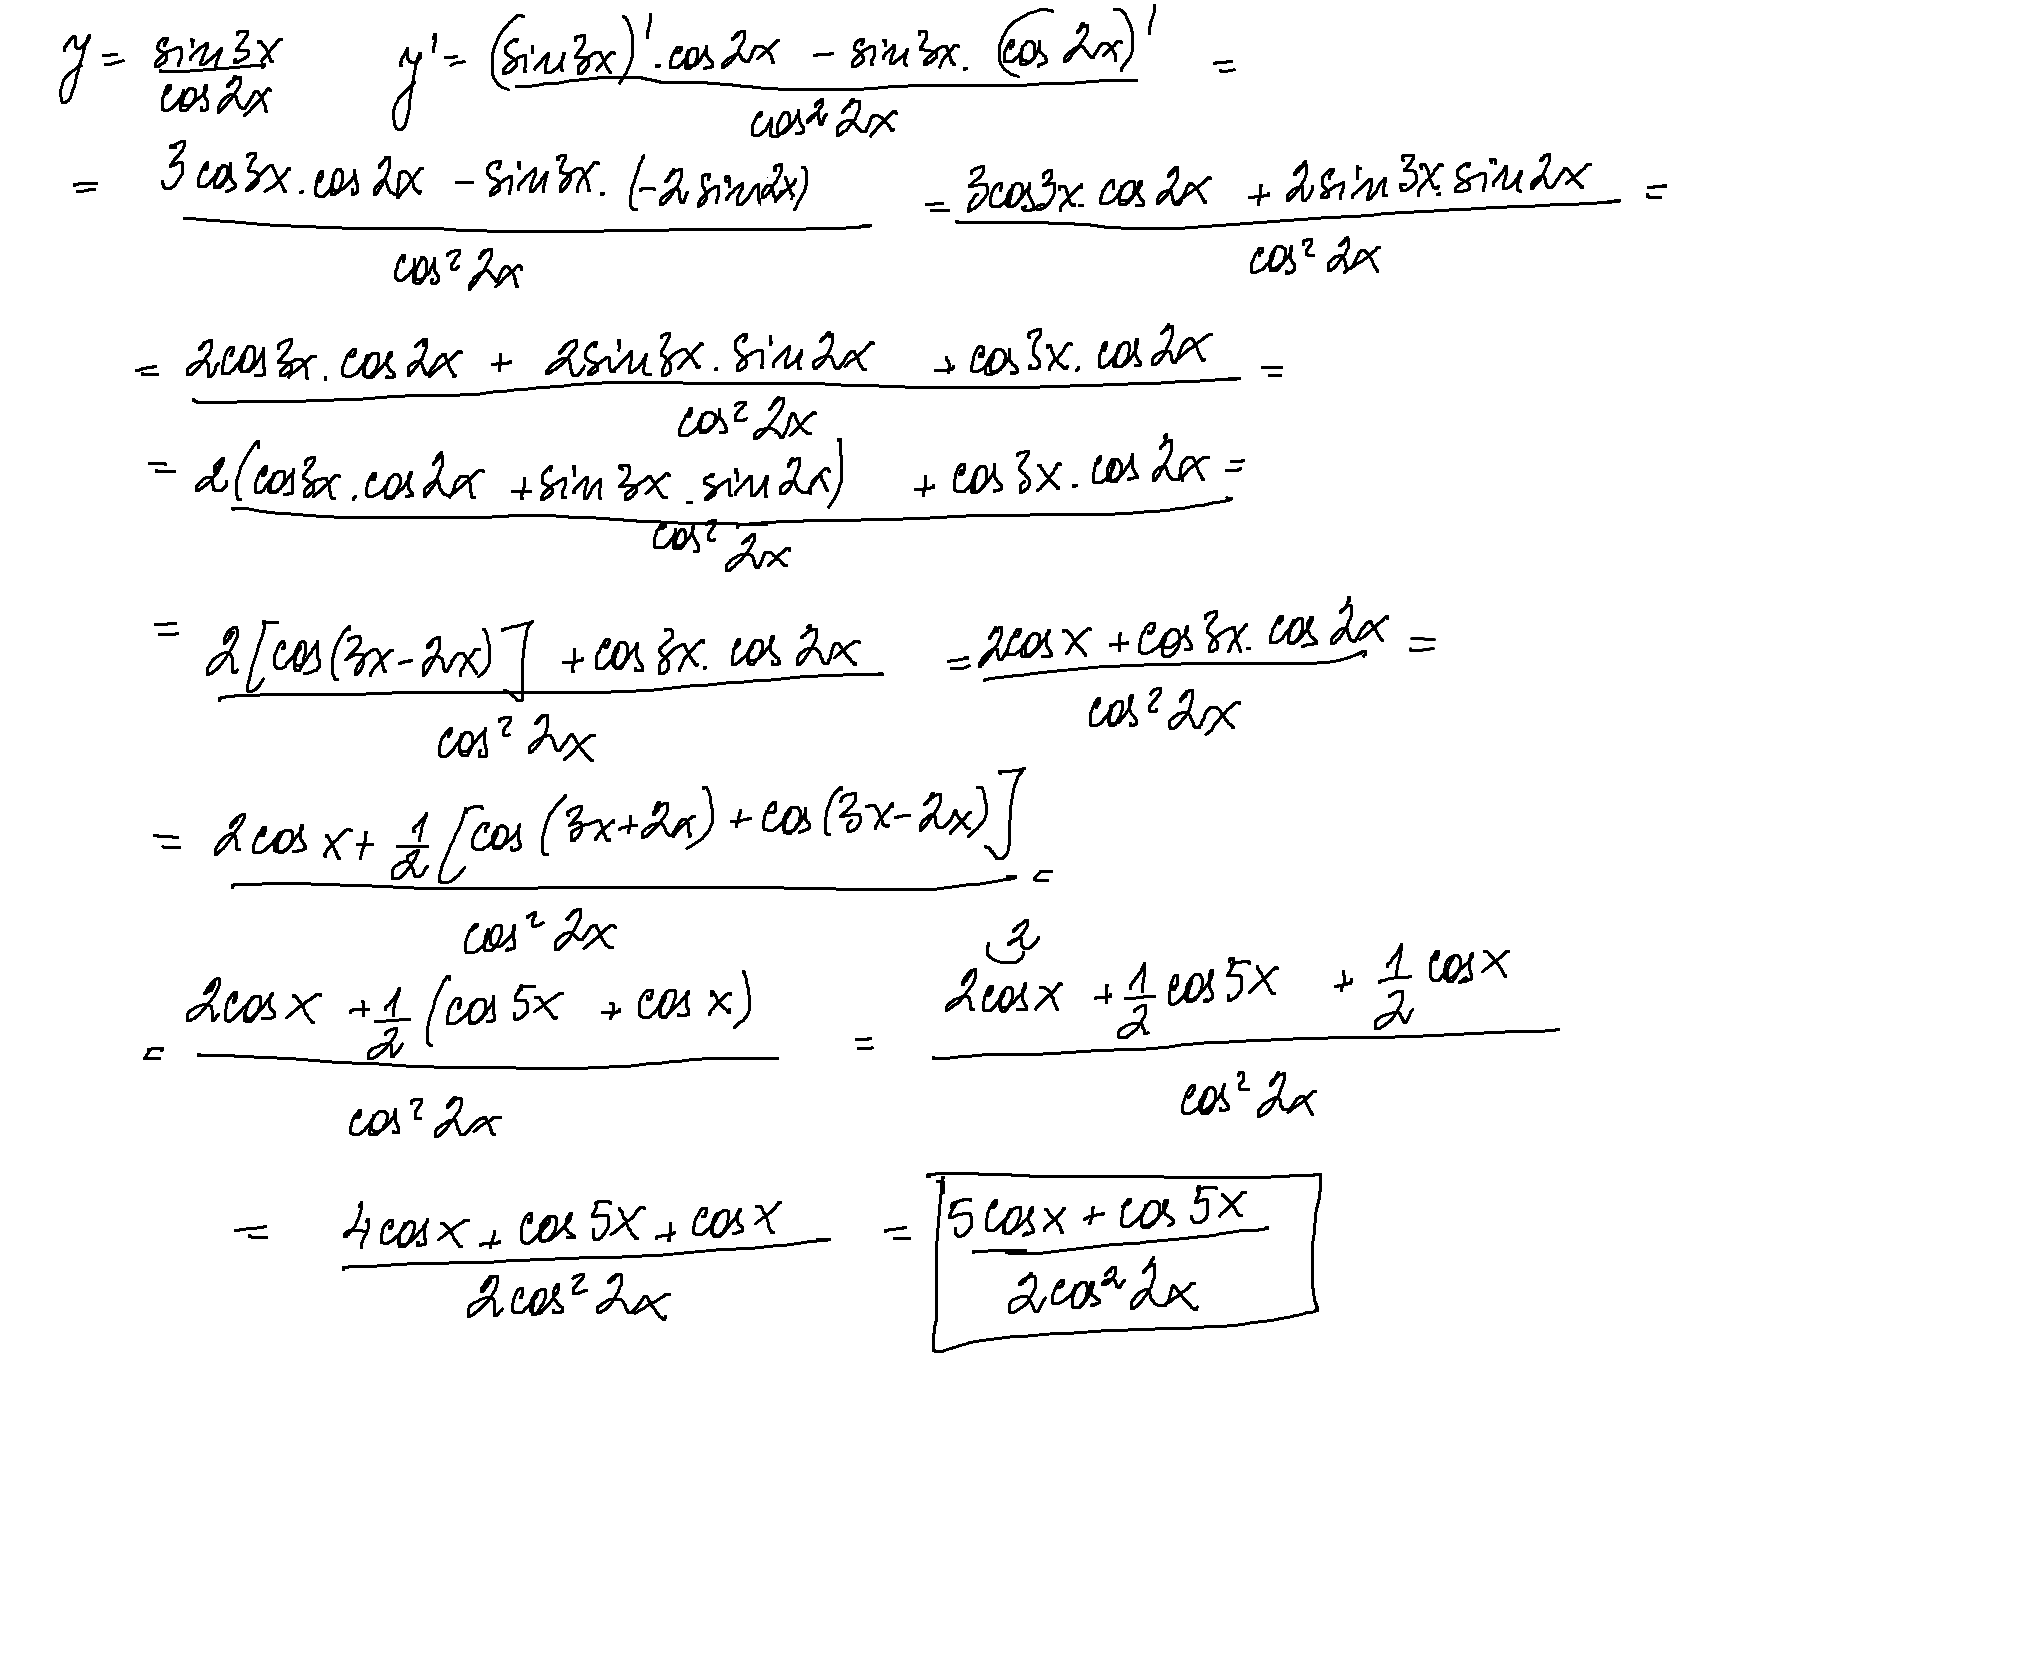 y = sin3x/cos2x    y' = ((sin3x)'.cos2x - sin3x.(cos2x)')/cos²2x =
= (3cos3x.cos2x - sin3x.(-2sin2x))/cos²2x = (3cos3x.cos2x + 2sin3x.sin2x)/cos²2x =
= (2cos3x.cos2x + 2sin3x.sin2x + cos3x.cos2x)/cos²2x =
= (2(cos3x.cos2x + sin3x.sin2x) + cos3x.cos2x)/cos²2x =
= (2[cos(3x-2x)] + cos3x.cos2x)/cos²2x = (2cosx + cos3x.cos2x)/cos²2x =
= (2cosx + 1/2[cos(3x+2x) + cos(3x-2x)])/cos²2x =
2
= (2cosx + 1/2(cos5x + cosx))/cos²2x = (2cosx + 1/2cos5x + 1/2cosx)/cos²2x
= (4cosx + cos5x + cosx)/2cos²2x = (5cosx + cos5x)/2cos²2x